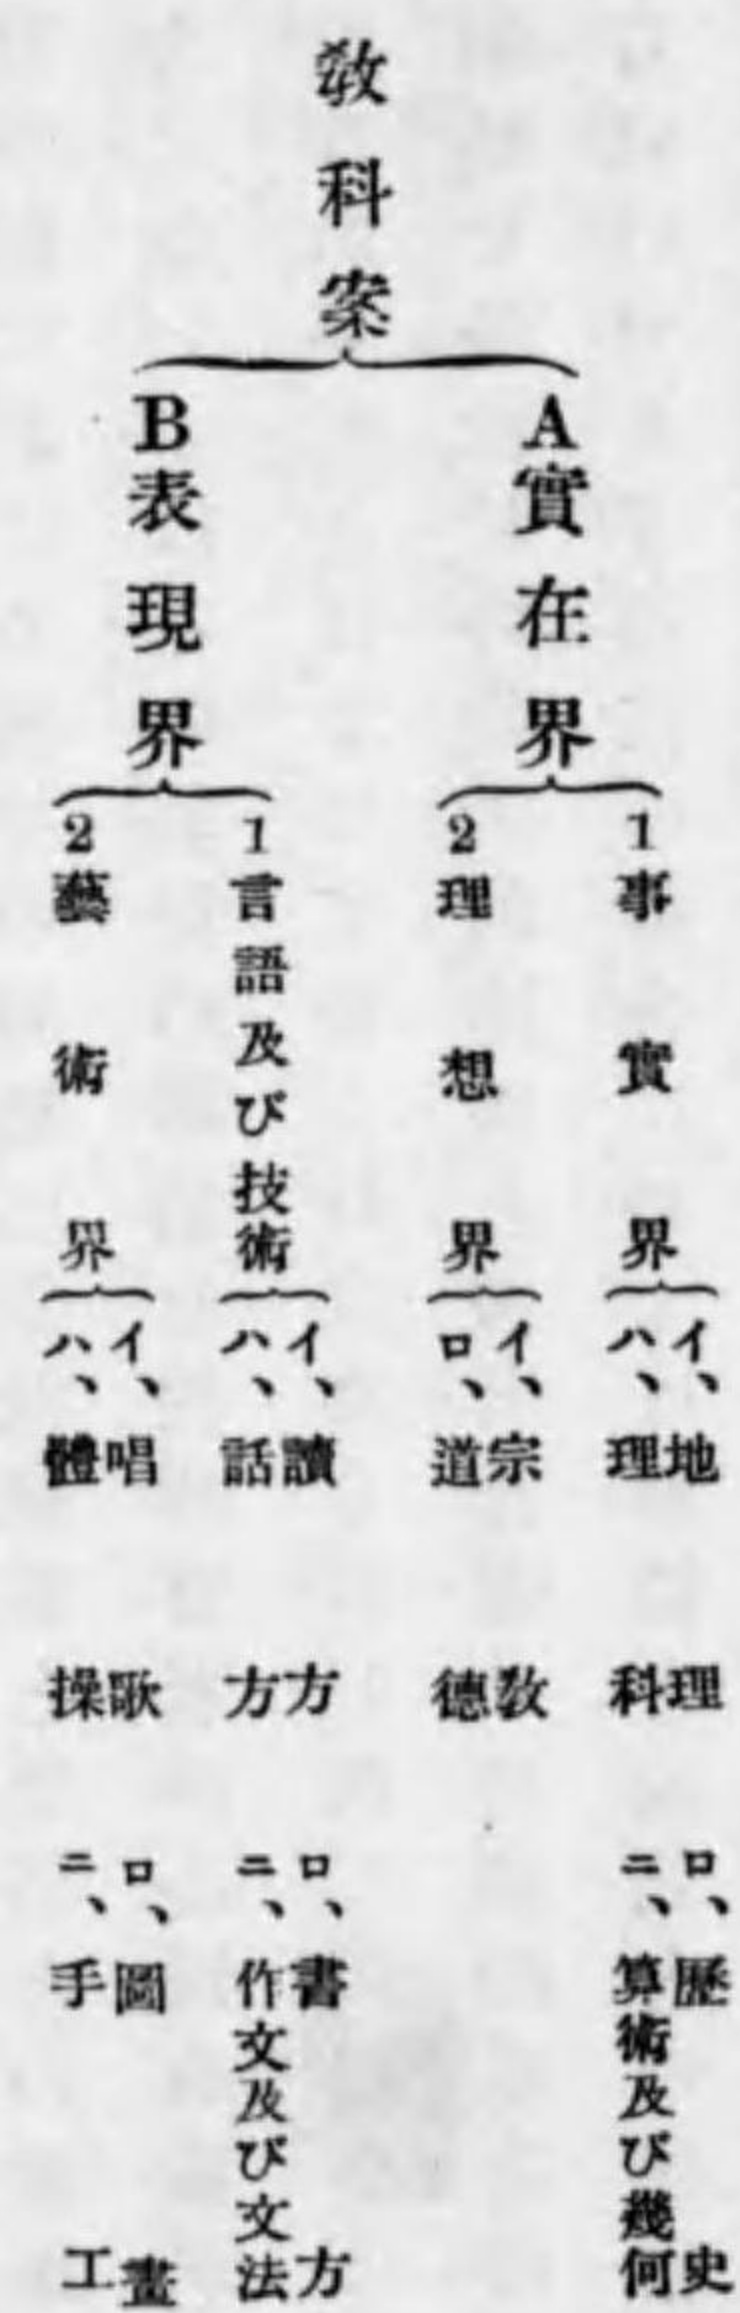 教科案
A實在界
1事實界
イ、地理 ロ、歷史
ハ、理科 ニ、算術及び幾何
2理想界
イ、宗教
ロ、道德
B表現界
1言語及び技術
イ、讀方 ロ、書方
ハ、話方 ニ、作文及び文法
2藝術界
イ、唱歌 ロ、圖畫
ハ、體操 ニ、手工